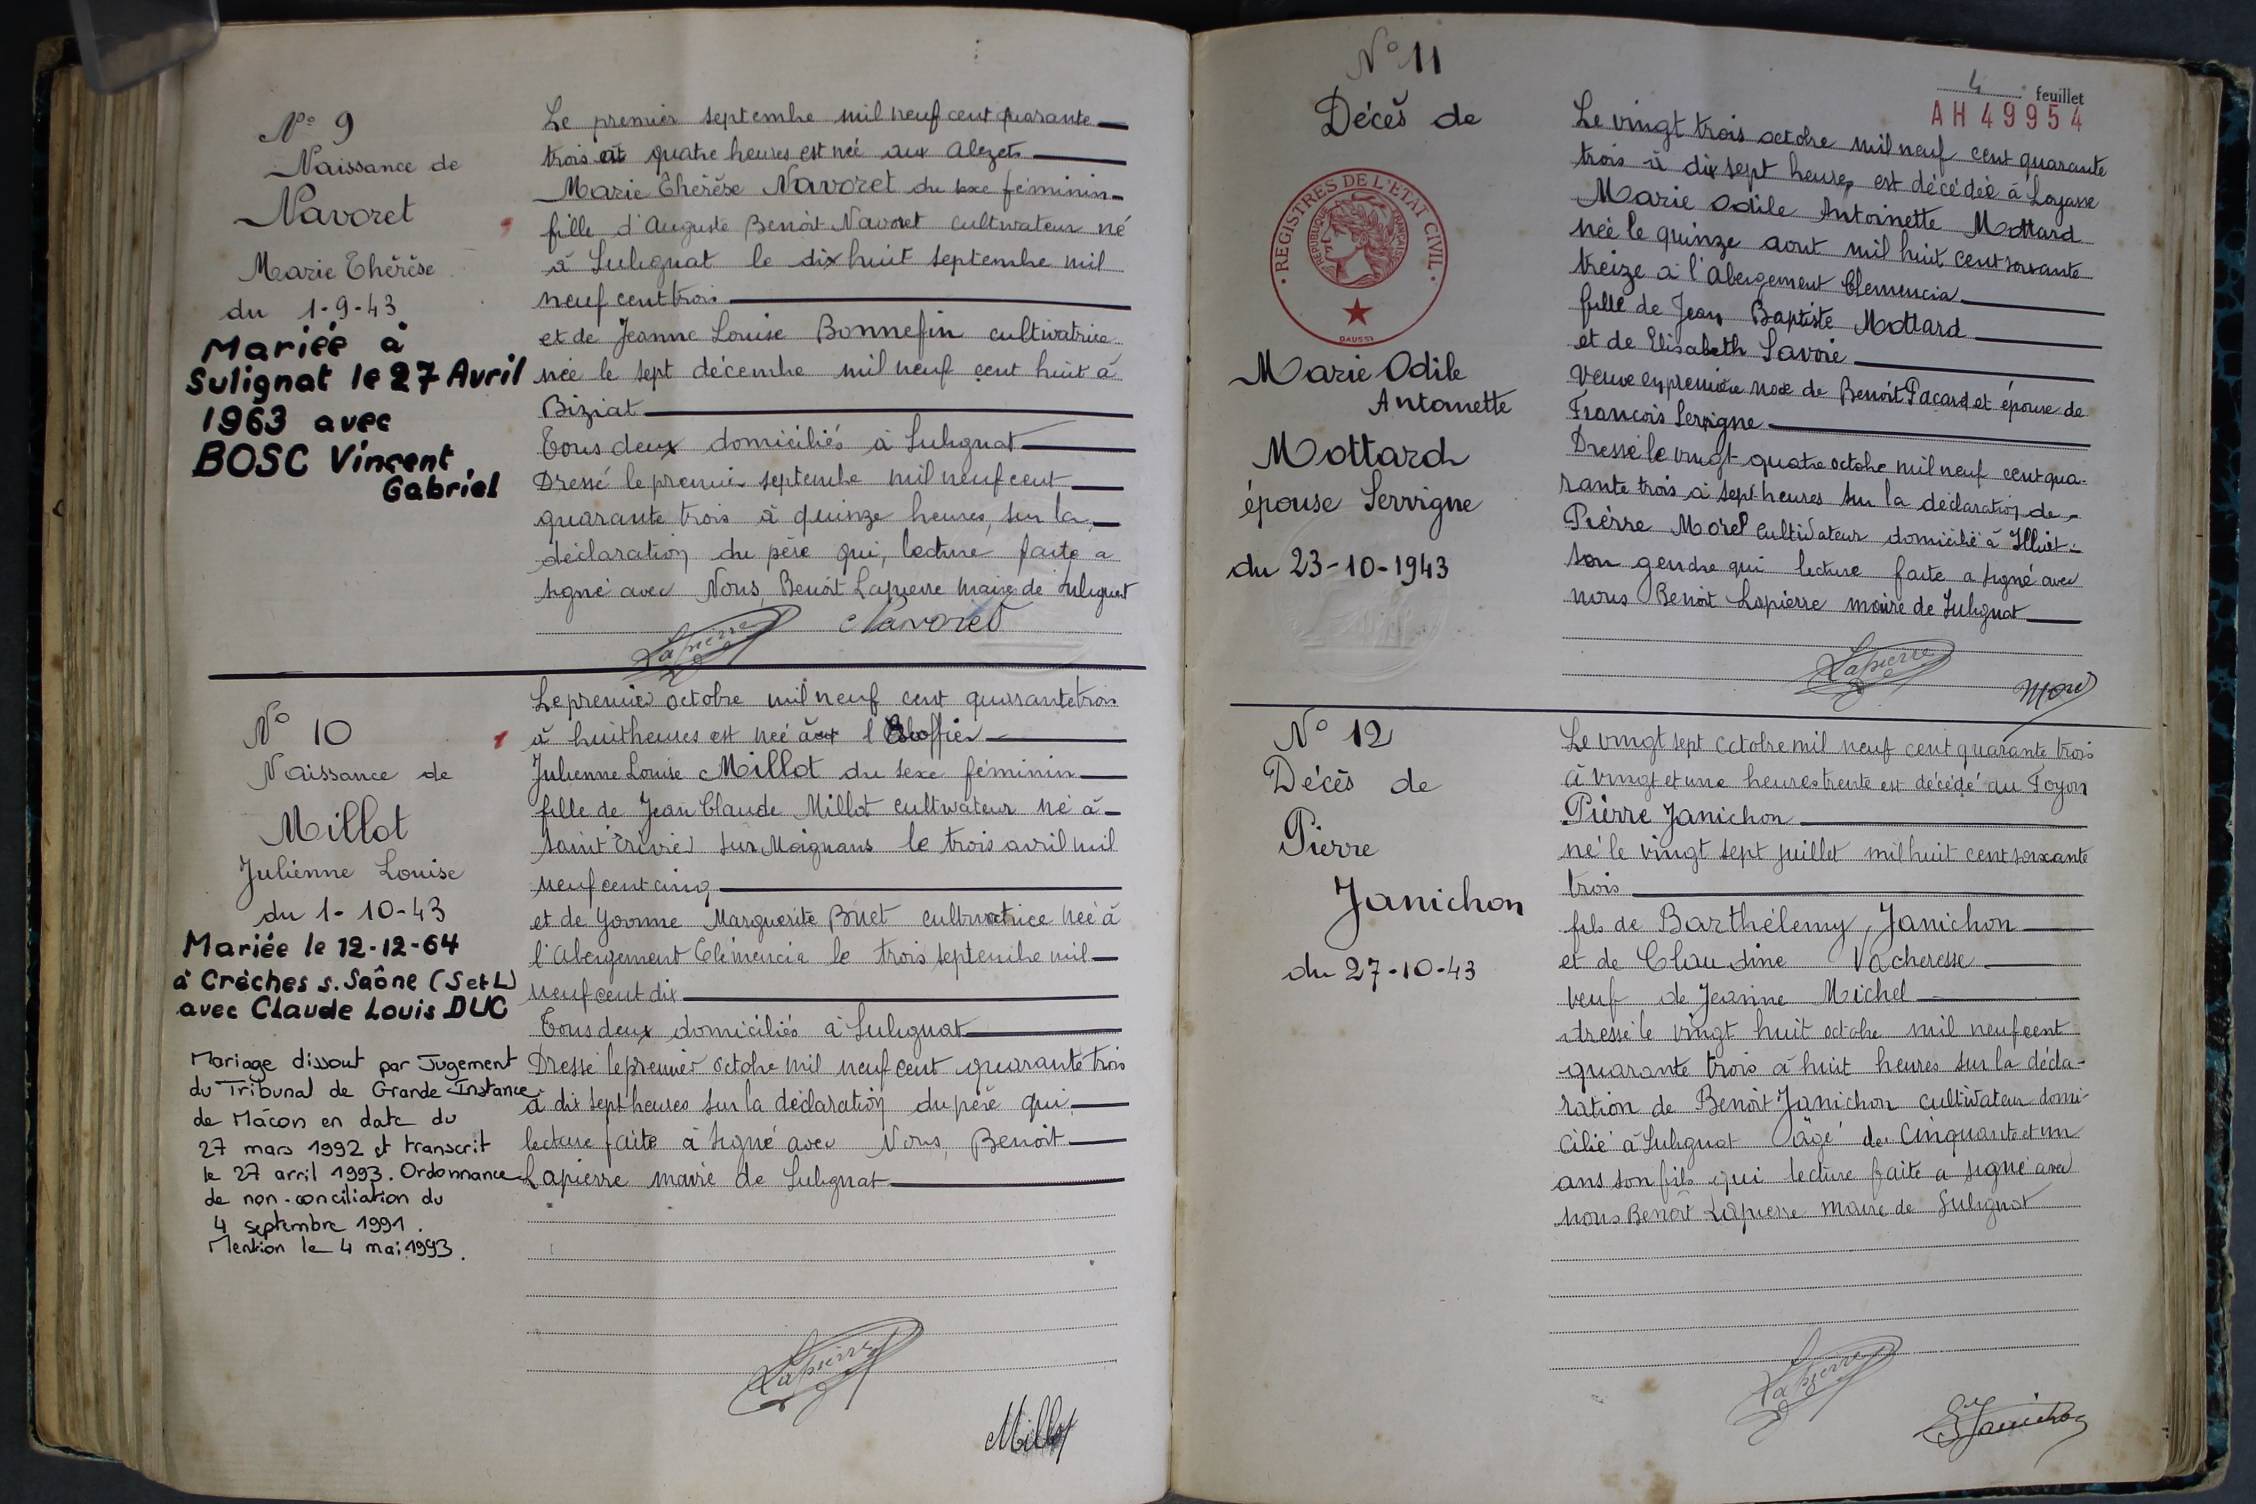 N° 9
Naissance de
Navoret
Marie Thérèse
du 1-9-43
Mariée à
Sulignat le 27 Avril
1963 avec
BOSC Vincent
Gabriel
Le premier septembre mil neuf cent quarante
trois à quatre heures est née aux Alezets
Marie Thérèse Navoret du sexe féminin
fille d'Auguste Benoît Navoret cultivateur né
à Sulignat le dix huit septembre mil
neuf cent trois
et de Jeanne Louise Bonnefin cultivatrice
née le sept décembre mil neuf cent huit à
Biziat
Tous deux domiciliés à Sulignat
Dressé le premier septembre mil neuf cent
quarante trois à quinze heures, sur la
déclaration du père qui, lecture faite a
signé avec Nous, Benoît Lapierre maire de Sulignat
Lapierre Navoret
N° 10
Naissance de
Millot
Julienne Louise
du 1-10-43
Mariée le 12-12-64
à Crèches s. Saône (S et L)
avec Claude Louis DUC
Mariage dissout par Jugement
du Tribunal de Grande Instance
de Mâcon en date du
27 mars 1992 et transcrit
le 27 avril 1993. Ordonnance
de non-conciliation du
4 septembre 1991.
Mention le 4 mai 1993.
Le premier octobre mil neuf cent quarante trois
à huit heures est née
Julienne Louise Millot du sexe féminin
fille de Jean Claude Millot cultivateur né à
Saint Trivier sur Moignans le trois avril mil
neuf cent cinq
et de Yvonne Marguerite Buet cultivatrice née à
l'Abergement Clémencia le trois septembre mil
neuf cent dix
Tous deux domiciliés à Sulignat
Dressé le premier octobre mil neuf cent quarante trois
à dix sept heures sur la déclaration du père qui,
lecture faite a signé avec Nous, Benoît
Lapierre maire de Sulignat
Lapierre
Millot
4 feuillet
AH 49954
N° 11
Décès de
REGISTRES DE L'ÉTAT CIVIL
RÉPUBLIQUE FRANÇAISE
DAUSSY
Marie Odile
Antoinette
Mottard
épouse Servigne
du 23-10-1943
Le vingt trois octobre mil neuf cent quarante
trois à dix sept heures est décédée à Loyasse
Marie Odile Antoinette Mottard
née le quinze aout mil huit cent soixante
treize à l'Abergement Clemencia
fille de Jean Baptiste Mottard
et de Elisabeth Savoie
Veuve en première noce de Benoît Pacard et épouse de
Francois Servigne
Dressé le vingt quatre octobre mil neuf cent qua-
rante trois à sept heures sur la déclaration de
Pièrre Morel cultivateur domicilié à Illiat
son gendre qui lecture faite a signé avec
nous Benoît Lapierre maire de Sulignat
Lapierre
Morel
N° 12
Décès de
Pierre
Janichon
du 27-10-43
Le vingt sept octobre mil neuf cent quarante trois
à vingt et une heures trente est décédé au Foyon
Pièrre Janichon
né le vingt sept juillet mil huit cent soixante
trois
fils de Barthélemy, Janichon
et de Claudine Vacheresse
veuf de Jeanne Michel
dressé le vingt huit octobre mil neuf cent
quarante trois à huit heures sur la décla-
ration de Benoît Janichon cultivateur domi-
cilié à Sulignat âgé de cinquante et un
ans son fils qui lecture faite a signé avec
nous Benoît Lapierre maire de Sulignat
Lapierre
Janichon